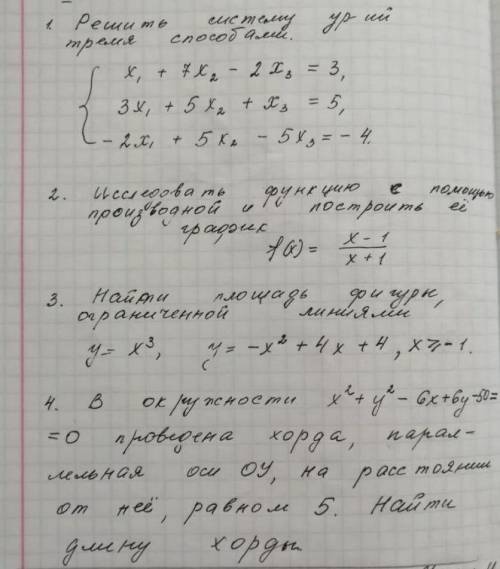 1. Решить систему ур-ий
тремя способами.
x₁ + 7x₂ - 2x₃ = 3,
3x₁ + 5x₂ + x₃ = 5,
-2x₁ + 5x₂ - 5x₃ = -4.
2. Исследовать функцию с помощью
производной и построить её
график
f(x) = (x-1)/(x+1)
3. Найти площадь фигуры,
ограниченной линиями
y = x³, y = -x² + 4x + 4, x ≥ -1.
4. В окружности x² + y² - 6x + 6y - 50 =
= 0 проведена хорда, парал-
лельная оси ОУ, на расстоянии
от неё, равном 5. Найти
длину хорды.